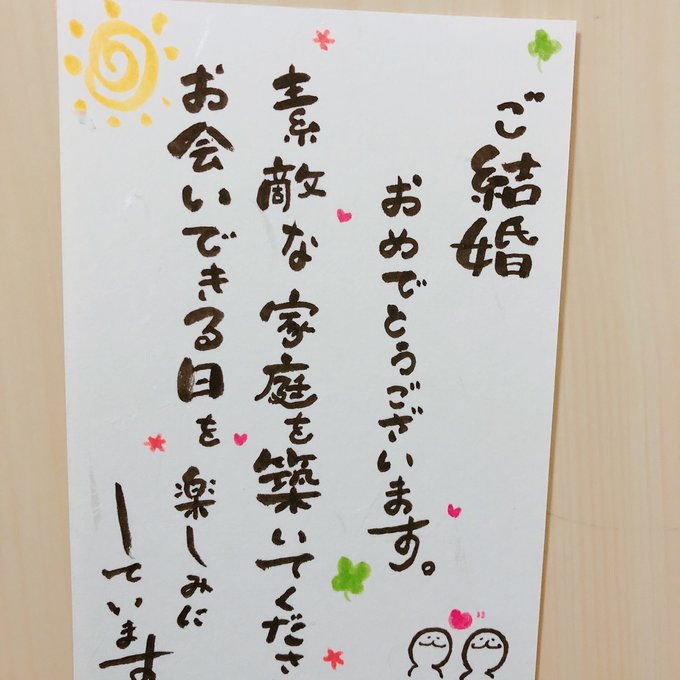 ご結婚
おめでとうございます。
素敵な家庭を築いてくださ
お会いできる日を楽しみに
しています